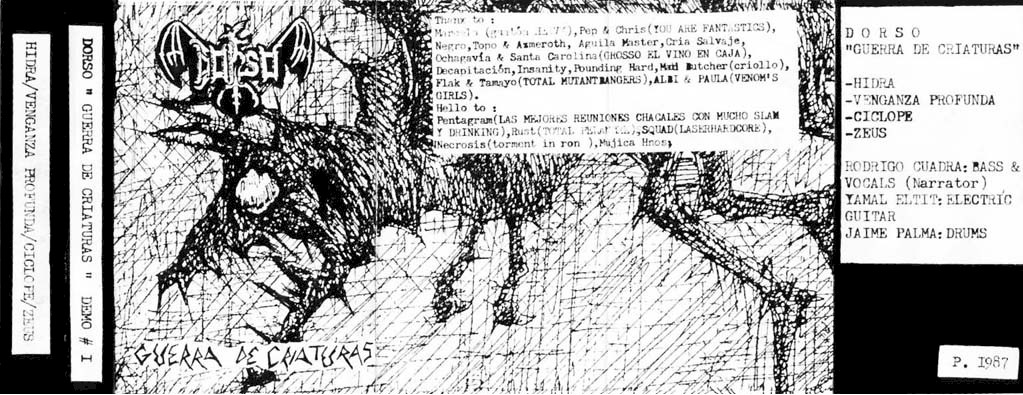 HIDRA/VENGANZA PROFUNDA/CICLOPE/ZEUS
DORSO " GUERRA DE CRIATURAS " DEMO # I
DORSO
GUERRA DE CRIATURAS
Thanx to :
Pop & Chris(YOU ARE FANTASTICS),
Negro,Topo & Azmeroth, Aguila Master,Cria Salvaje,
Ochagavía & Santa Carolina(GROSSO EL VINO EN CAJA),
Decapitación,Insanity,Pounding Hard,Mad Butcher(criollo),
Flak & Tamayo(TOTAL MUTANTBANGERS),ALBI & PAULA(VENOM'S
GIRLS).
Hello to :
Pentagram(LAS MEJORES REUNIONES CHACALES CON MUCHO SLAM
Y DRINKING),Rust(TOTAL ),SQUAD(LASERHARDCORE),
Necrosis(torment in ron ),Mujica Hnos.
D O R S O
"GUERRA DE CRIATURAS"
-HIDRA
-VENGANZA PROFUNDA
-CICLOPE
-ZEUS
RODRIGO CUADRA: BASS &
VOCALS (Narrator)
YAMAL ELTIT: ELECTRIC
GUITAR
JAIME PALMA: DRUMS
P. 1987